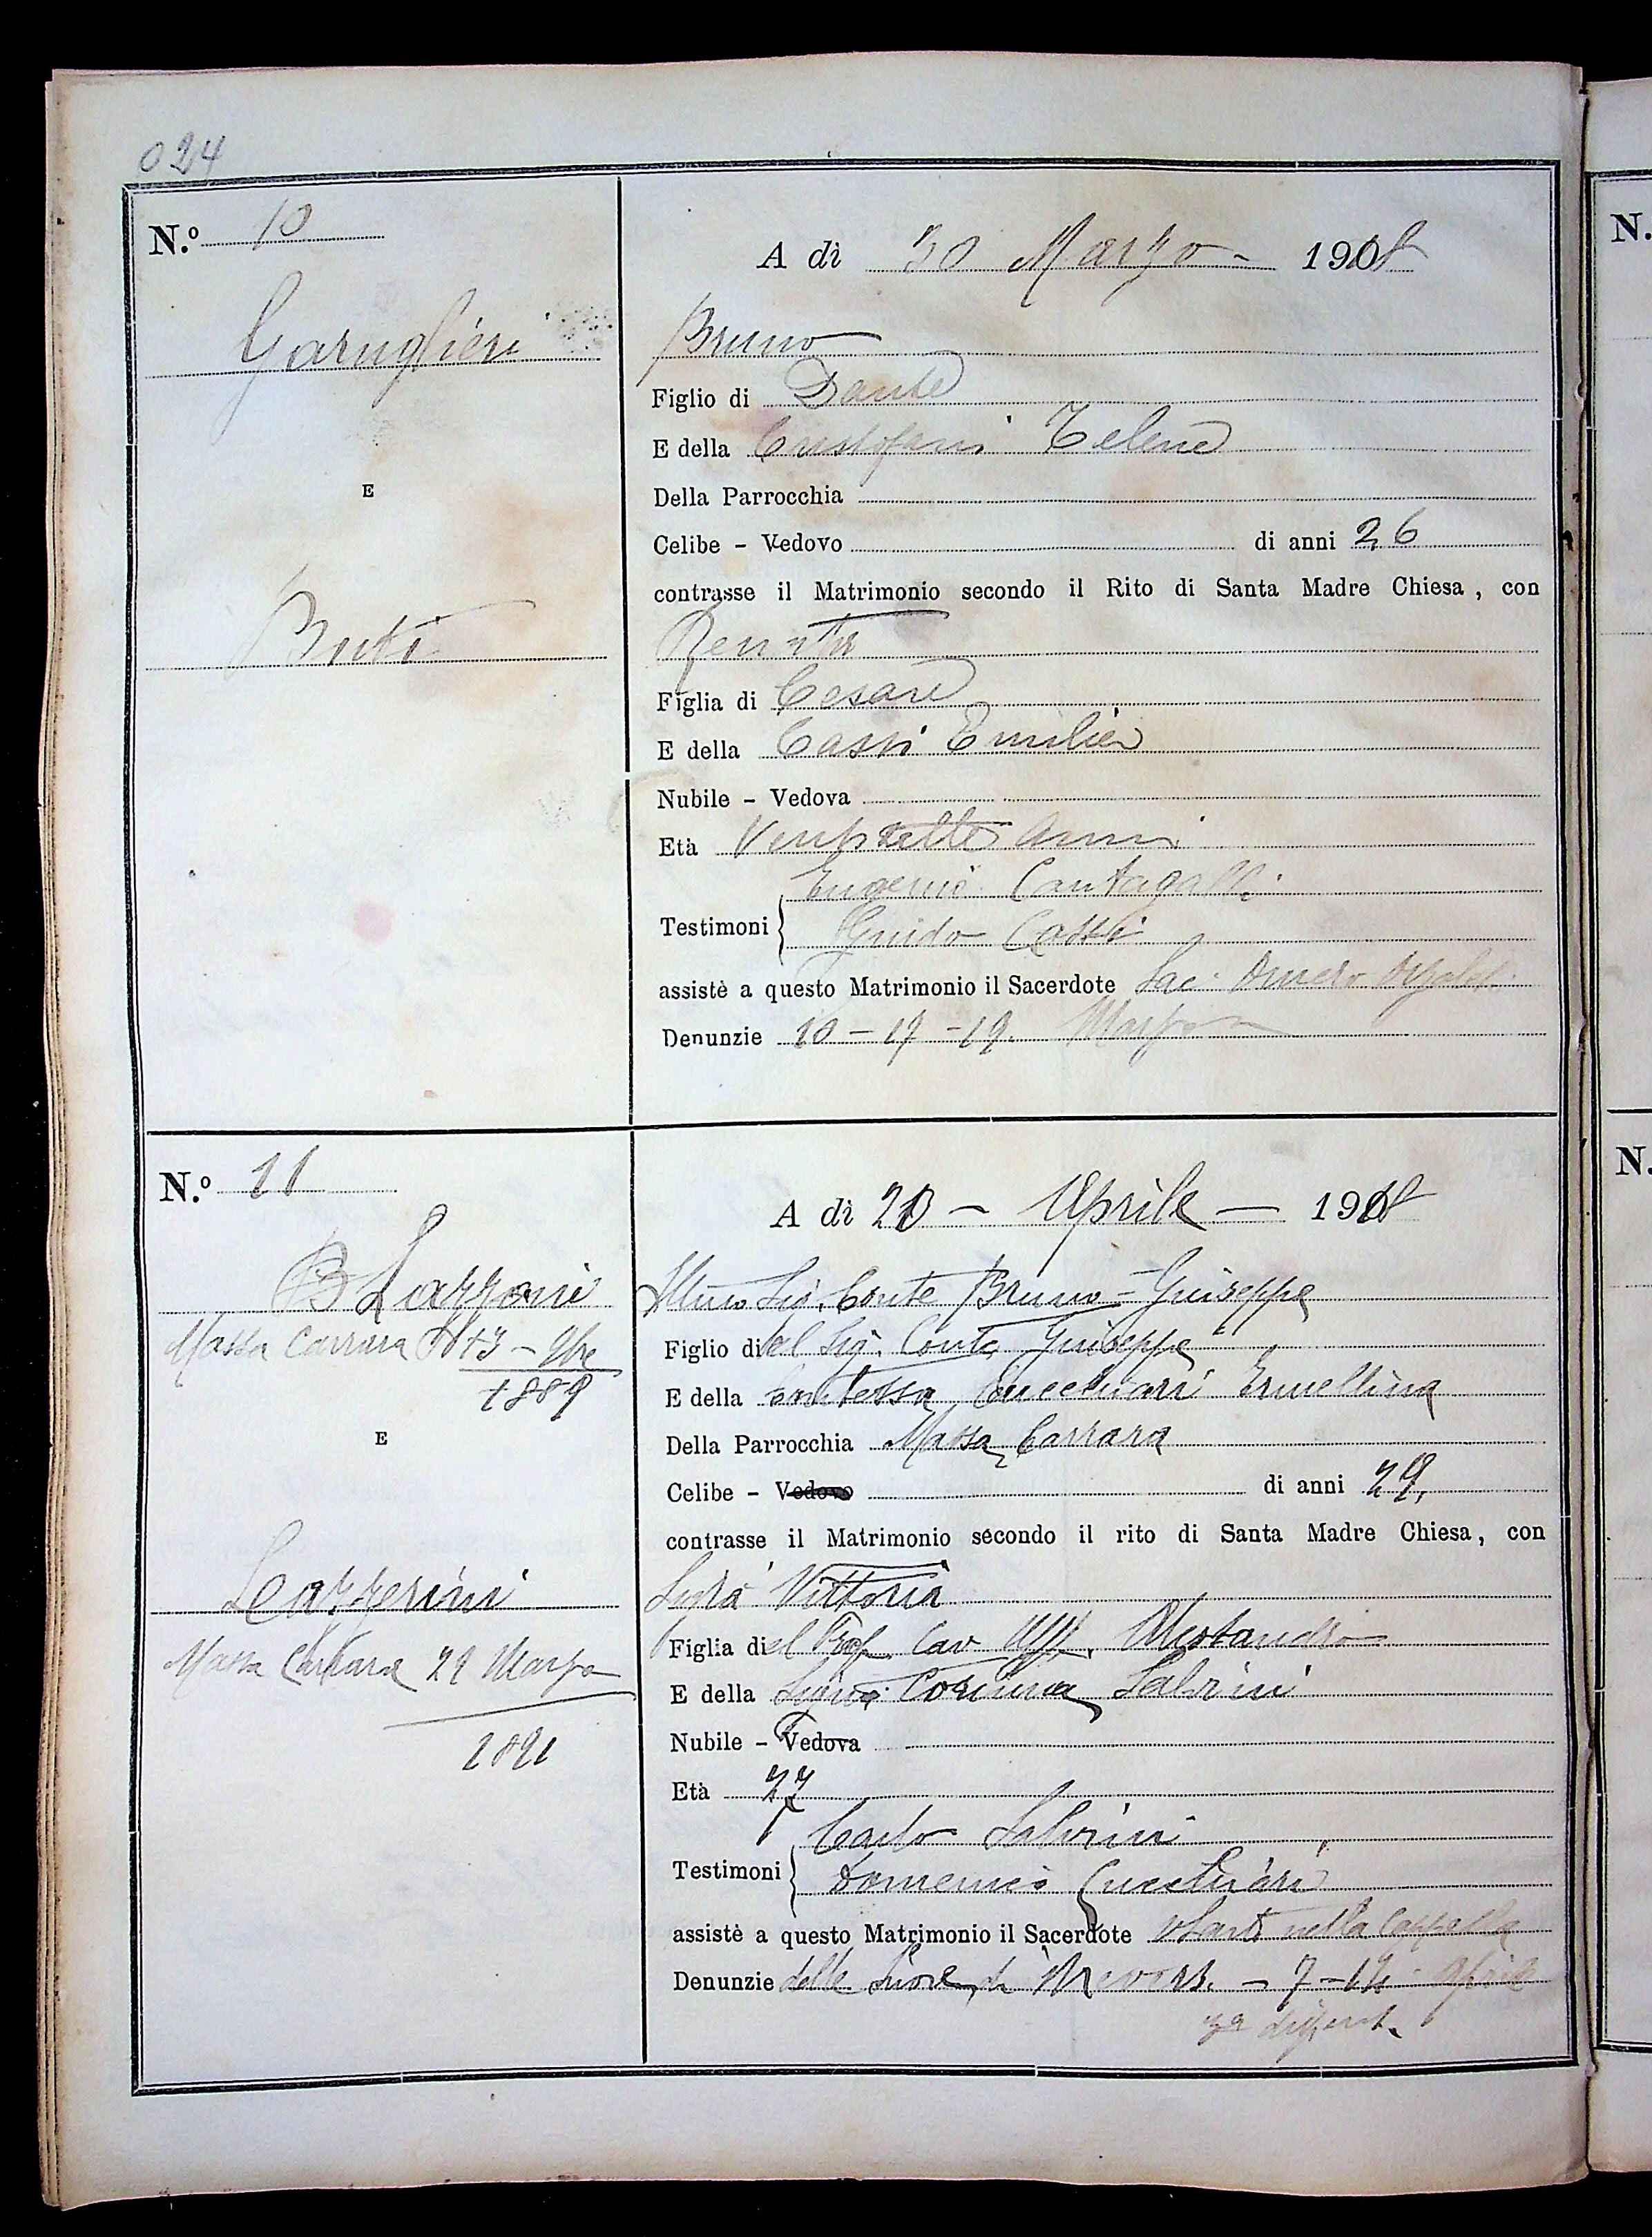 024
N.º 10
A dì 30 Marzo - 1918
Garuglieri
Bruno
Figlio di Dante
E della Cristofani Telene
E
Della Parrocchia
Celibe - Vedovo di anni 26
contrasse il Matrimonio secondo il Rito di Santa Madre Chiesa, con
Buti
Renata
Figlia di Cesare
E della Cassi Emilia
Nubile - Vedova
Età Ventisette anni
Eugenio Cantagalli
Testimoni
Guido Cassi
assistè a questo Matrimonio il Sacerdote Sac. Omero
Denunzie 10 - 17 - 19. Marzo
N.º 11
A dì 20 - Aprile - 1918
B Lazzoni
Illmo Sig. Conte Bruno - Giuseppe
Massa Carrara 3 - 9bre
1889
Figlio di del Sig. Conte Giuseppe
E della Contessa Cucchiari Ermellina
E
Della Parrocchia Massa Carrara
Celibe - Vedovo di anni 29,
contrasse il Matrimonio secondo il rito di Santa Madre Chiesa, con
Lazzerini
Vittoria
Massa Carrara 29 Marzo
1891
Figlia di del Prof. Cav. Uff. Alessandro
E della Signra Corinna Salvini
Nubile - Vedova
Età 27
Carlo Salvini
Testimoni
Domenico Cucchiari
assistè a questo Matrimonio il Sacerdote nella Cappella
Denunzie delle Suore di - 7 - 14 Aprile
3a
N.
N.